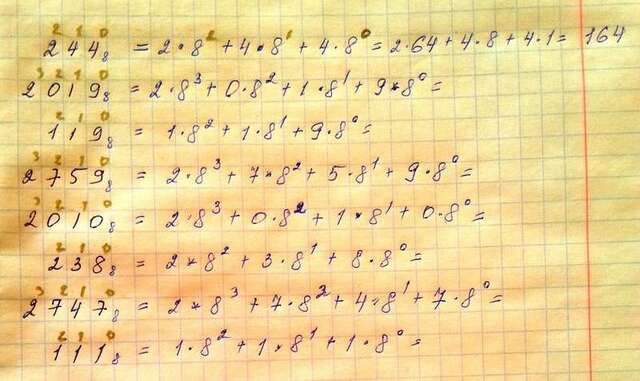 2 1 0
244₈ = 2·8² + 4·8¹ + 4·8⁰ = 2·64 + 4·8 + 4·1 = 164
3 2 1 0
2019₈ = 2·8³ + 0·8² + 1·8¹ + 9*8⁰ =
2 1 0
119₈ = 1·8² + 1·8¹ + 9·8⁰ =
3 2 1 0
2759₈ = 2·8³ + 7*8² + 5·8¹ + 9·8⁰ =
3 2 1 0
2010₈ = 2·8³ + 0·8² + 1*8¹ + 0·8⁰ =
2 1 0
238₈ = 2*8² + 3·8¹ + 8·8⁰ =
3 2 1 0
2747₈ = 2*8³ + 7·8² + 4·8¹ + 7·8⁰ =
2 1 0
111₈ = 1·8² + 1*8¹ + 1·8⁰ =